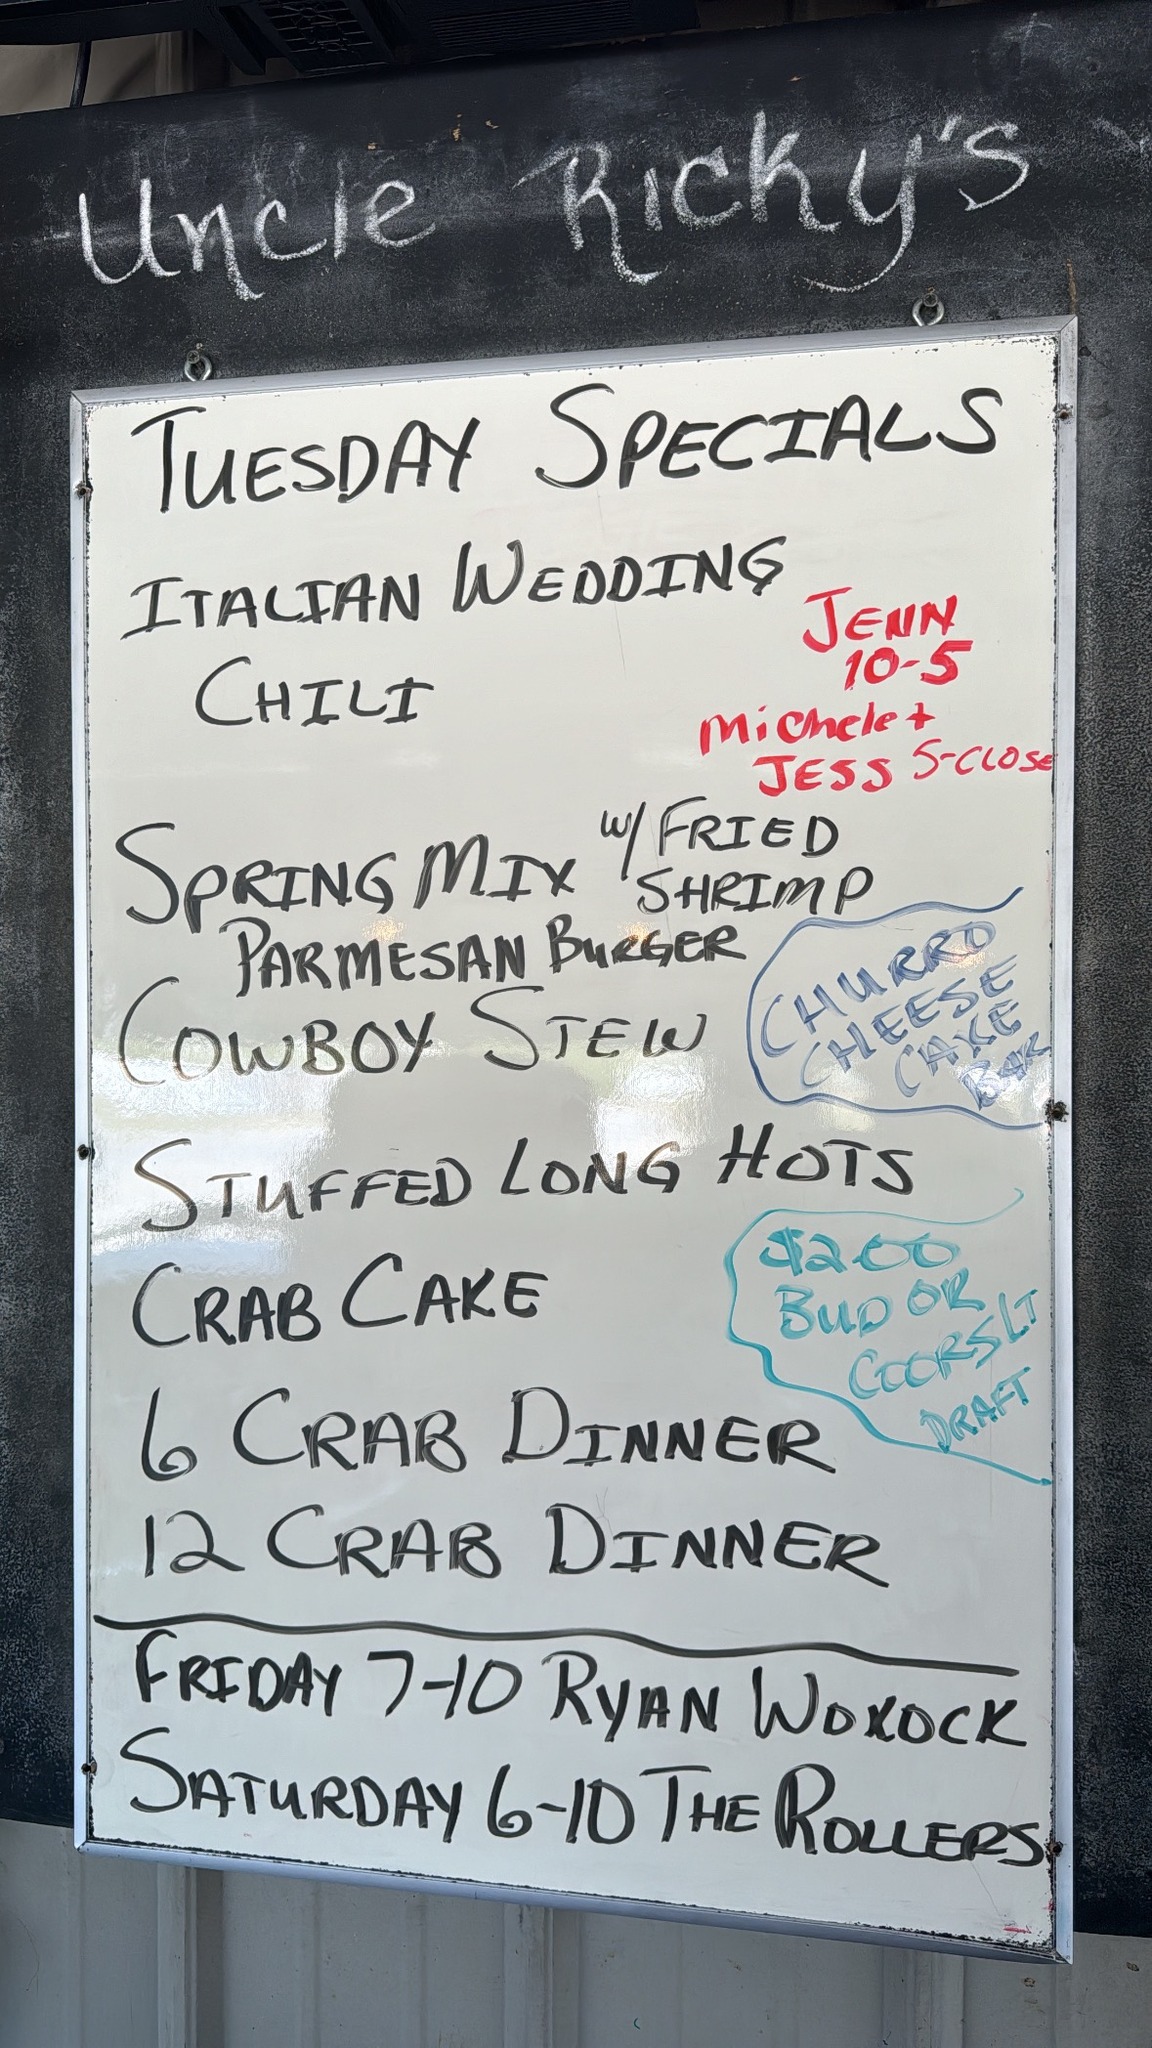 Uncle Ricky's
TUESDAY SPECIALS
ITALIAN WEDDING
CHILI
JENN
10-5
Michele +
JESS 5-CLOSE
SPRING MIX w/ FRIED
SHRIMP
PARMESAN BURGER
COWBOY STEW
CHURRO
CHEESE
CAKE
BAR
STUFFED LONG HOTS
CRAB CAKE
$2.00
BUD OR
COORS LT
DRAFT
6 CRAB DINNER
12 CRAB DINNER
FRIDAY 7-10 RYAN WOXOCK
SATURDAY 6-10 THE ROLLERS